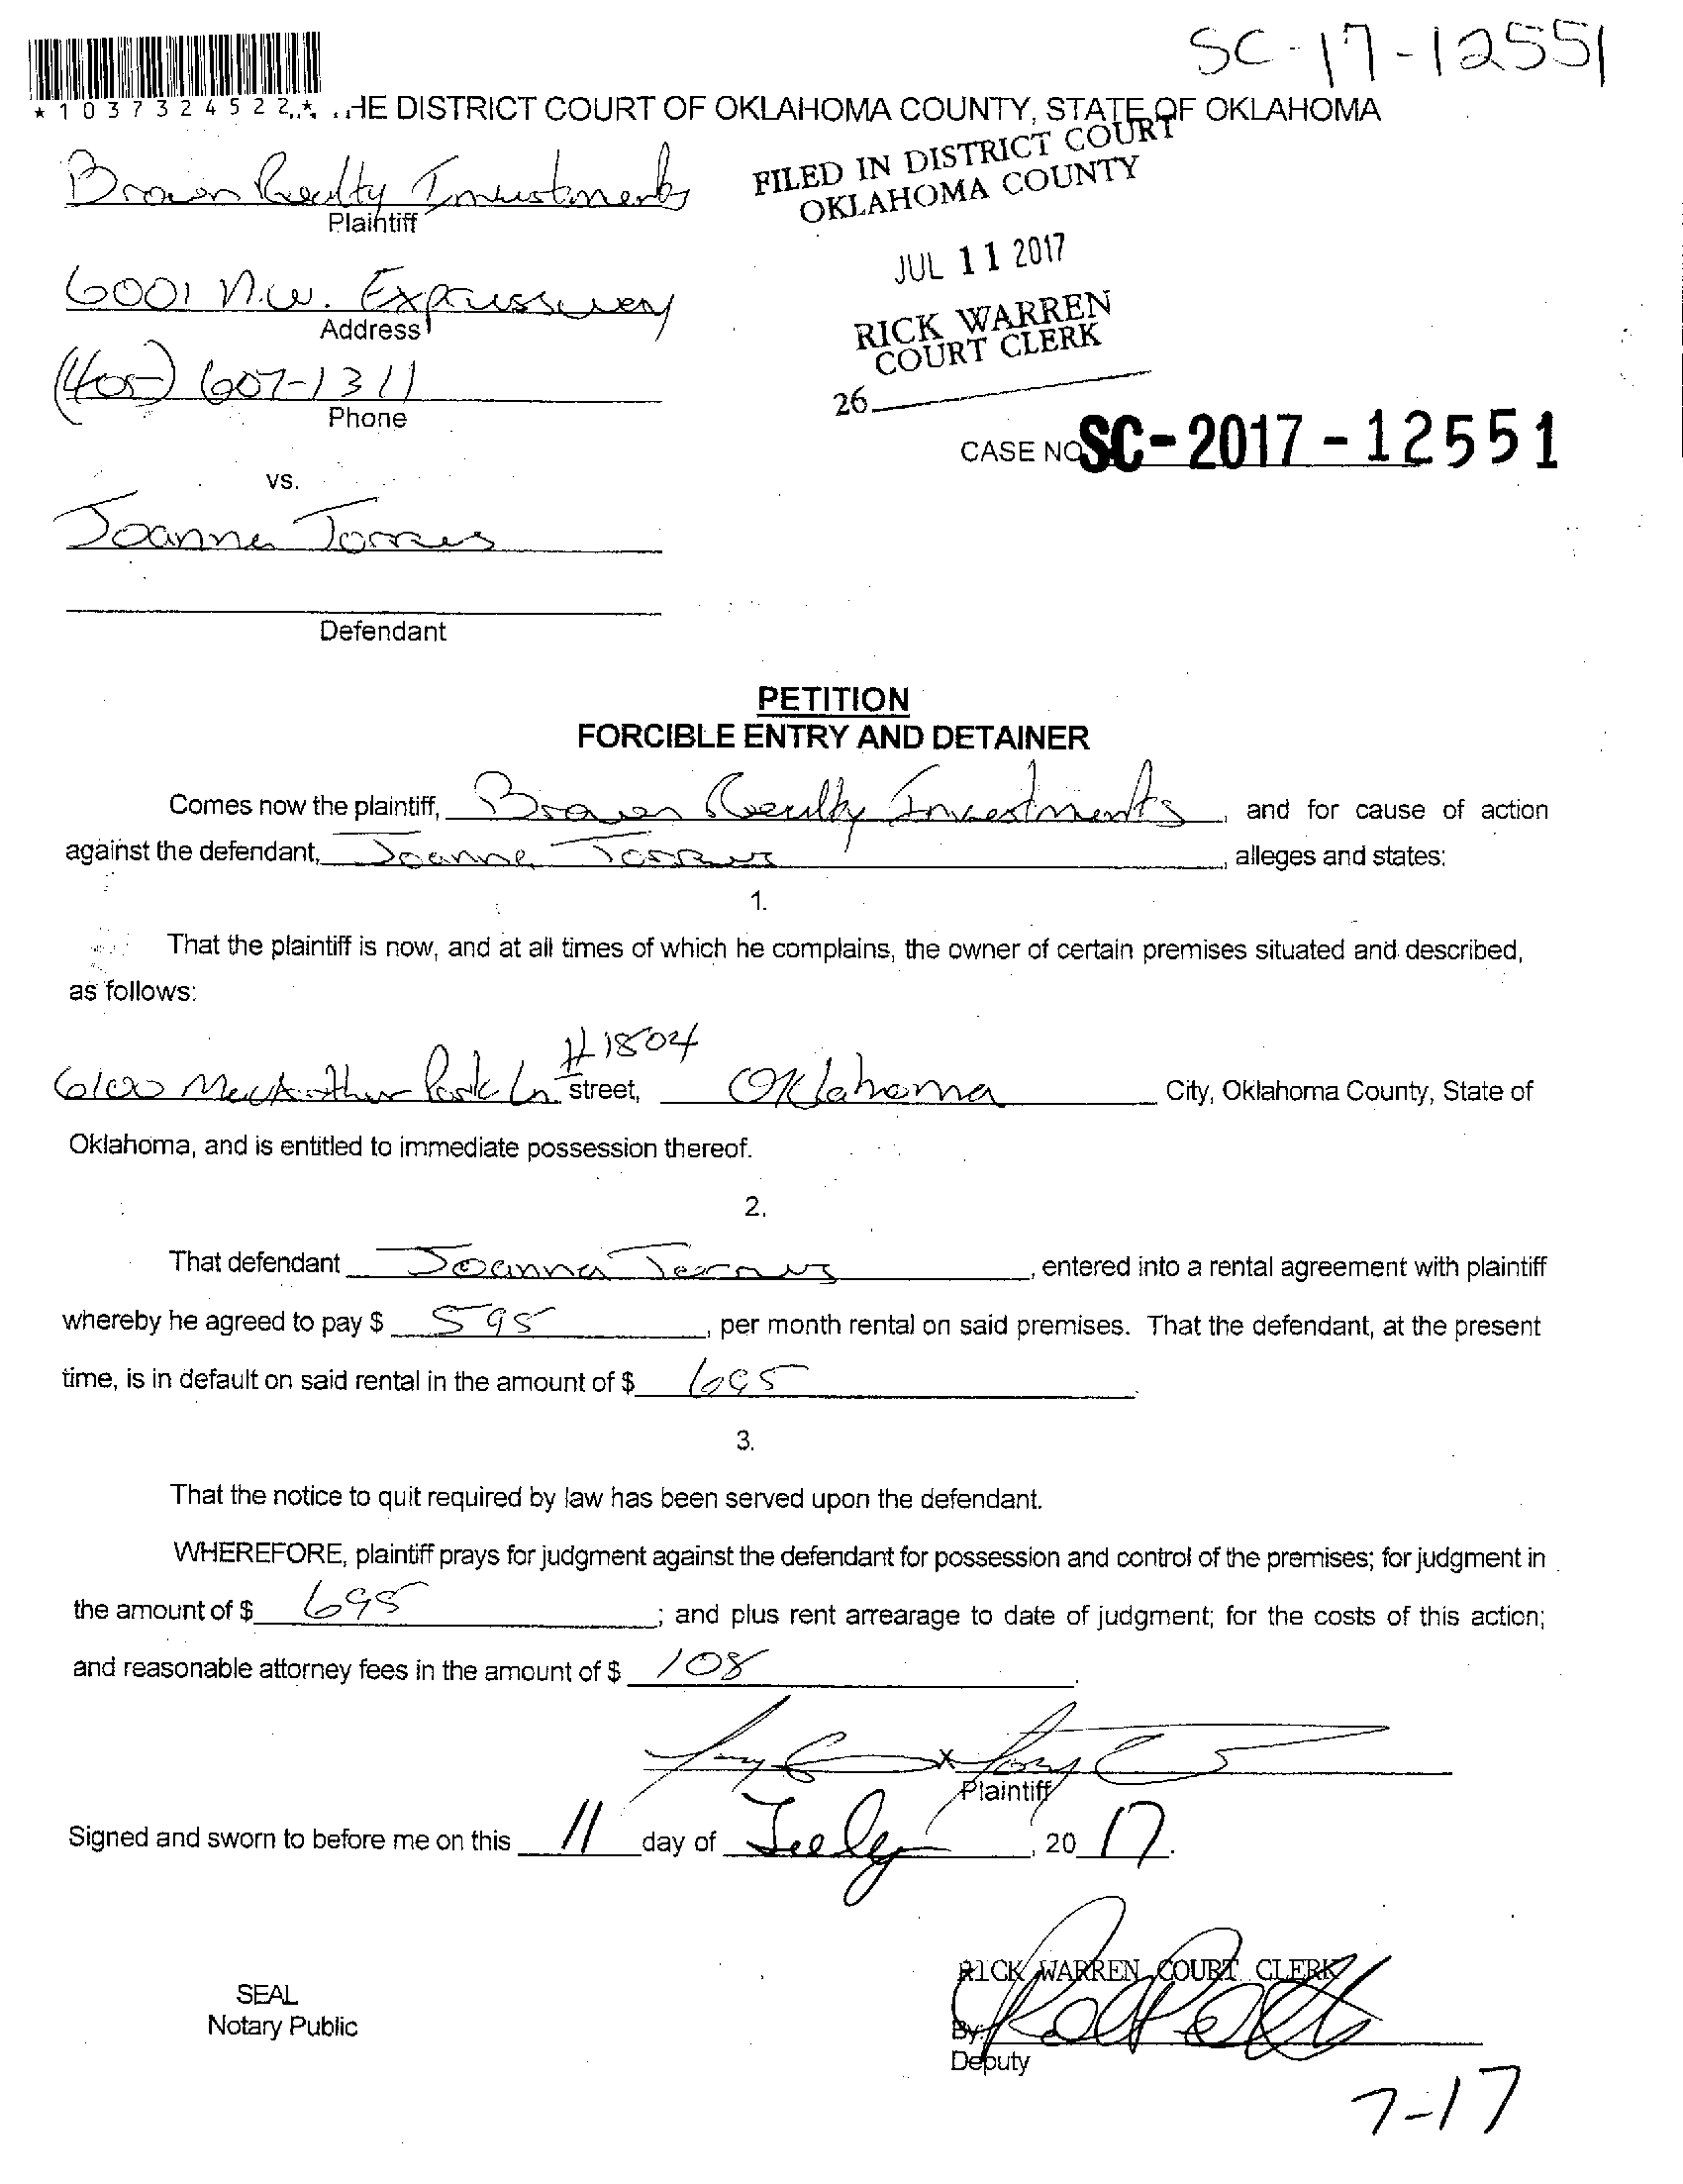 SC-17-12551
*1037324522* HE DISTRICT COURT OF OKLAHOMA COUNTY, STATE OF OKLAHOMA
FILED IN DISTRICT COURT
OKLAHOMA COUNTY
Realty Investments
Plaintiff
JUL 11 2017
6001 N.W. Expressway
Address
RICK WARREN
COURT CLERK
(405) 607-1311
Phone
26
CASE NO SC-2017-12551
vs.
Joanna Torres
Defendant
PETITION
FORCIBLE ENTRY AND DETAINER
Comes now the plaintiff, Realty Investments, and for cause of action
against the defendant, Joanna Torres, alleges and states:
1.
That the plaintiff is now, and at all times of which he complains, the owner of certain premises situated and described,
as follows:
#1804
6100 MacArthur Park Ln street, Oklahoma City, Oklahoma County, State of
Oklahoma, and is entitled to immediate possession thereof.
2.
That defendant Joanna Torres, entered into a rental agreement with plaintiff
whereby he agreed to pay $ 595, per month rental on said premises. That the defendant, at the present
time, is in default on said rental in the amount of $ 695
3.
That the notice to quit required by law has been served upon the defendant.
WHEREFORE, plaintiff prays for judgment against the defendant for possession and control of the premises; for judgment in
the amount of $ 695; and plus rent arrearage to date of judgment; for the costs of this action;
and reasonable attorney fees in the amount of $ 108.
x
Plaintiff
Signed and sworn to before me on this 11 day of July, 20 17.
RICK WARREN COURT CLERK
SEAL
Notary Public
By:
Deputy
7-17